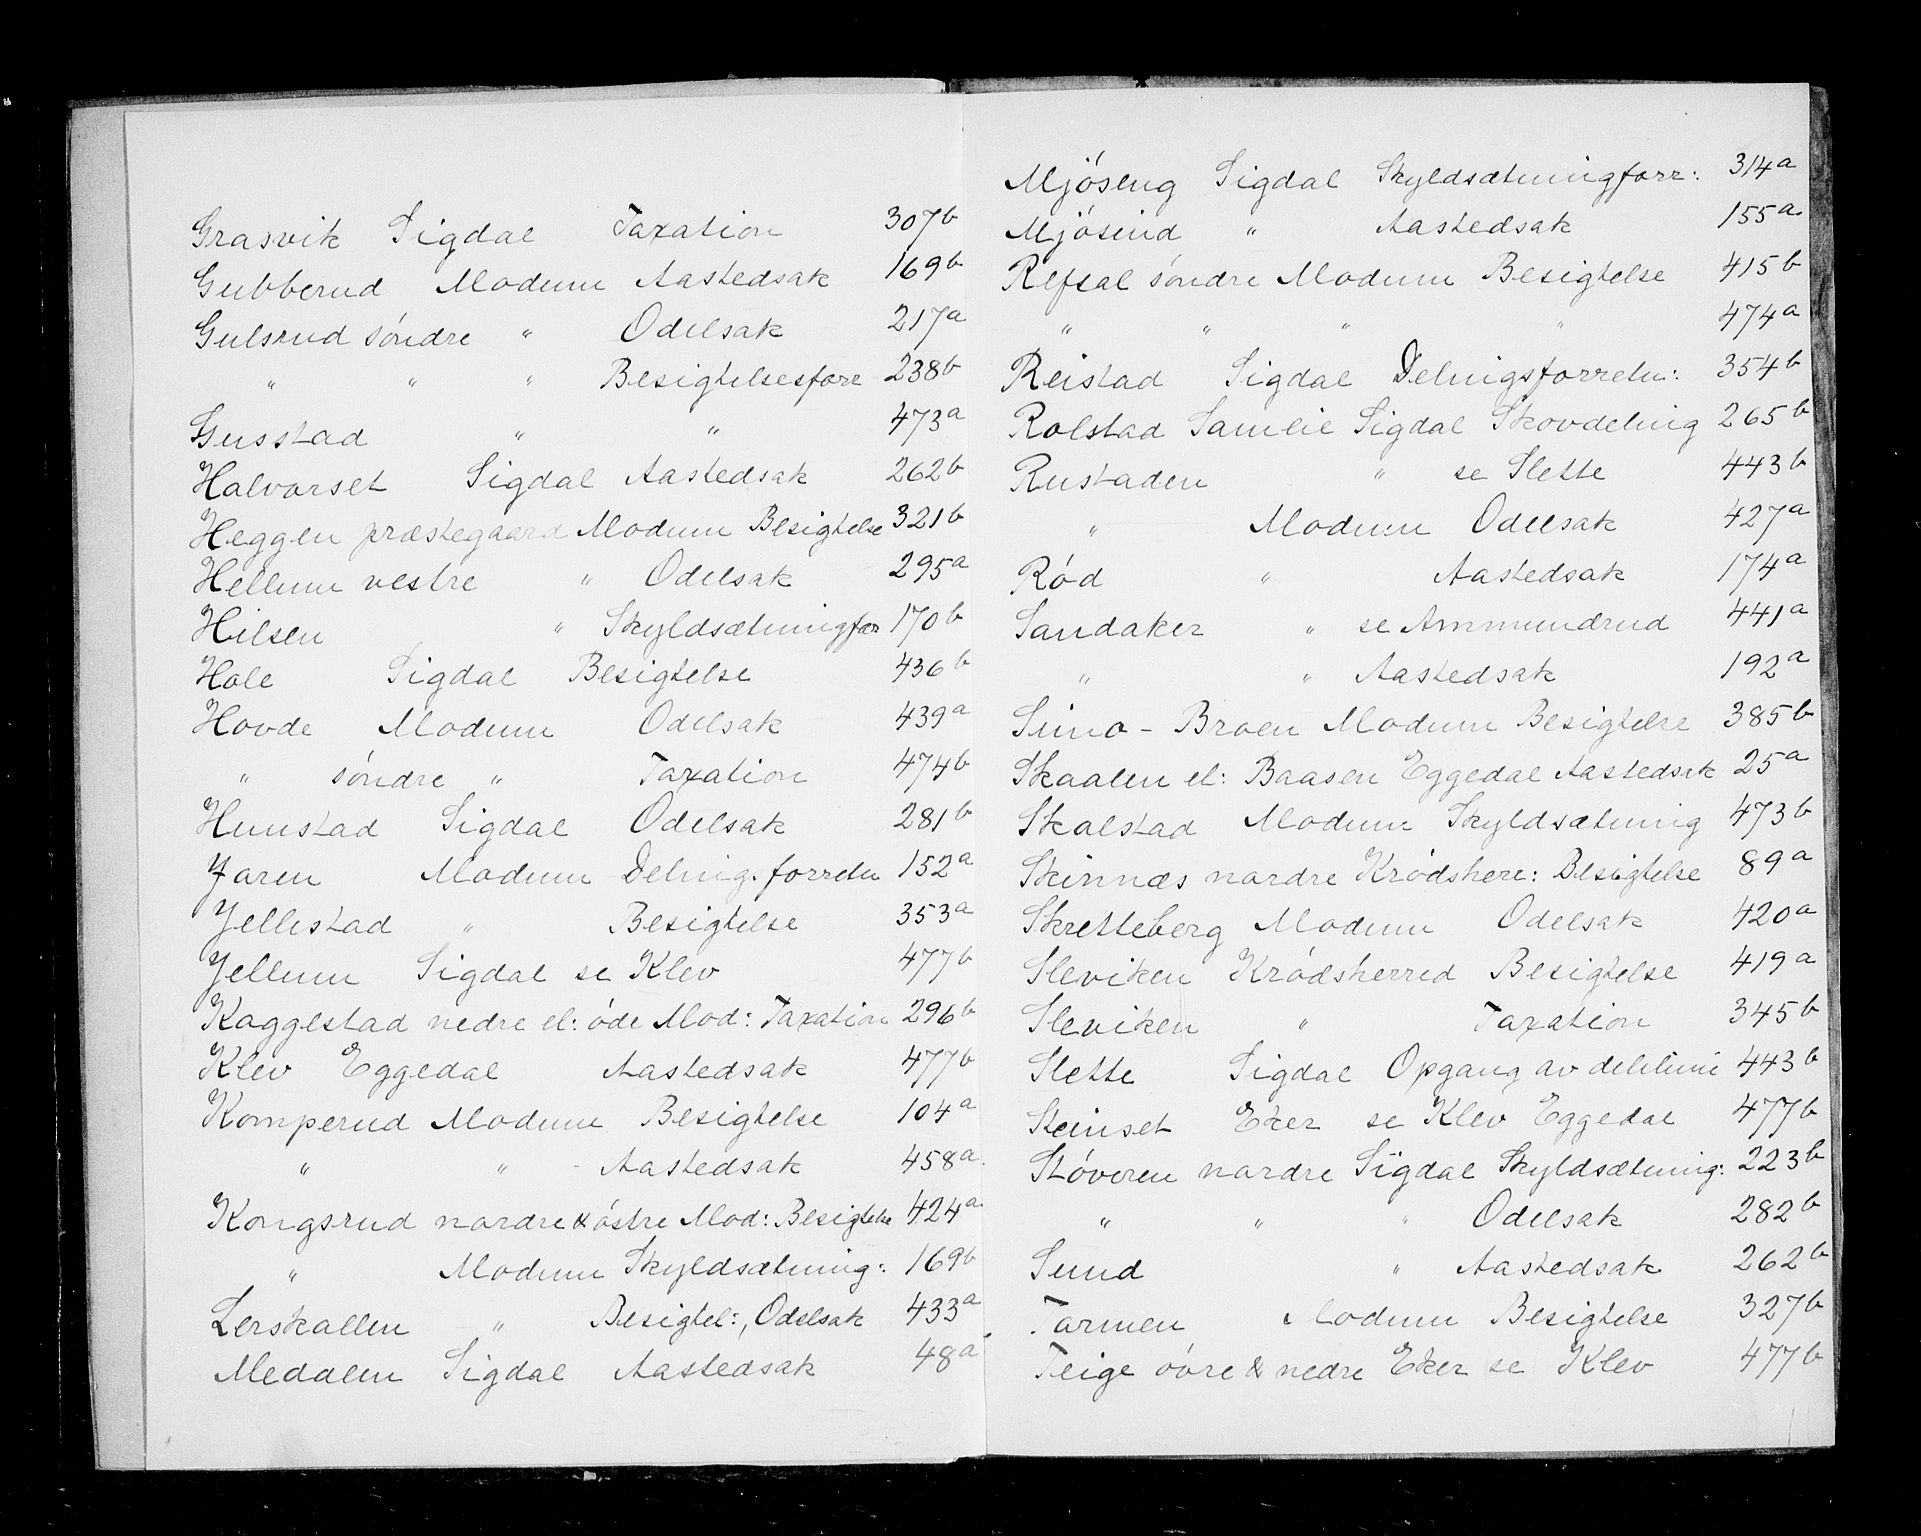 Grasvik Sigdal Taxation 307b
Gubberud Modum Aastedsak 169b
Gulsrud söndre " Odelsak 217a
" " " Besigtelsesforr 238b
Gusstad " " 473a
Halvorset Sigdal Aastedsak 262b
Heggen præstegaard Modum Besigtelse 321b
Hellum vestre " Odelsak 295a
Hilsen " Skyldsætningfor 170b
Hole Sigdal Besigtelse 436b
Hovde Modum Odelsak 439a
" söndre " Taxation 474b
Hunstad Sigdal Odelsak 281b
Jaren Modum Delnigsforretn 152a
Jellestad " Besigtelse 353a
Jellum Sigdal se Klev 477b
Kaggestad nedre el: öde Mod: Taxation 296b
Klev Eggedal Aastedsak 477b
Komperud Modum Besigtelse 104a
" " Aastedsak 458a
Kongsrud nordre & östre Mod: Besigtelse 424a
" Modum Skyldsætning: 169b
Lerskallen " Besigtel:, Odelsak 433a
Medalen Sigdal Aastedsak 48a
Mjöseng Sigdal Skyldsætningforr: 314a
Mjösund " Aastedsak 155a
Refsal söndre Modum Besigtelse 415b
" " " " 474a
Reistad Sigdal Delnigsforretn: 354b
Rolstad Sameie Sigdal Skovdelnig 265b
Rustaden " se Slette 443b
" Modum Odelsak 427a
Röd " Aastedsak 174a
Sandaker " se Ammundrud 441a
" " Aastedsak 192a
Simo-Broen Modum Besigtelse 385b
Skaalen el: Baasen Eggedal Aastedsak 25a
Skalstad Modum Skyldsætning 473b
Skinnæs nordre Krödsher: Besigtelse 89a
Skretteberg Modum Odelsak 420a
Sleviken Krödsherred Besigtelse 419a
Sleviken " Taxation 345b
Slette Sigdal Opgang av delelinie 443b
Steinset Eker se Klev Eggedal 477b
Stöveren nordre Sigdal Skyldsætning: 223b
" " " Odelsak 282b
Sund " Aastedsak 262b
Tarmen Modum Besigtelse 327b
Teige övre & nedre Eker se Klev 477b